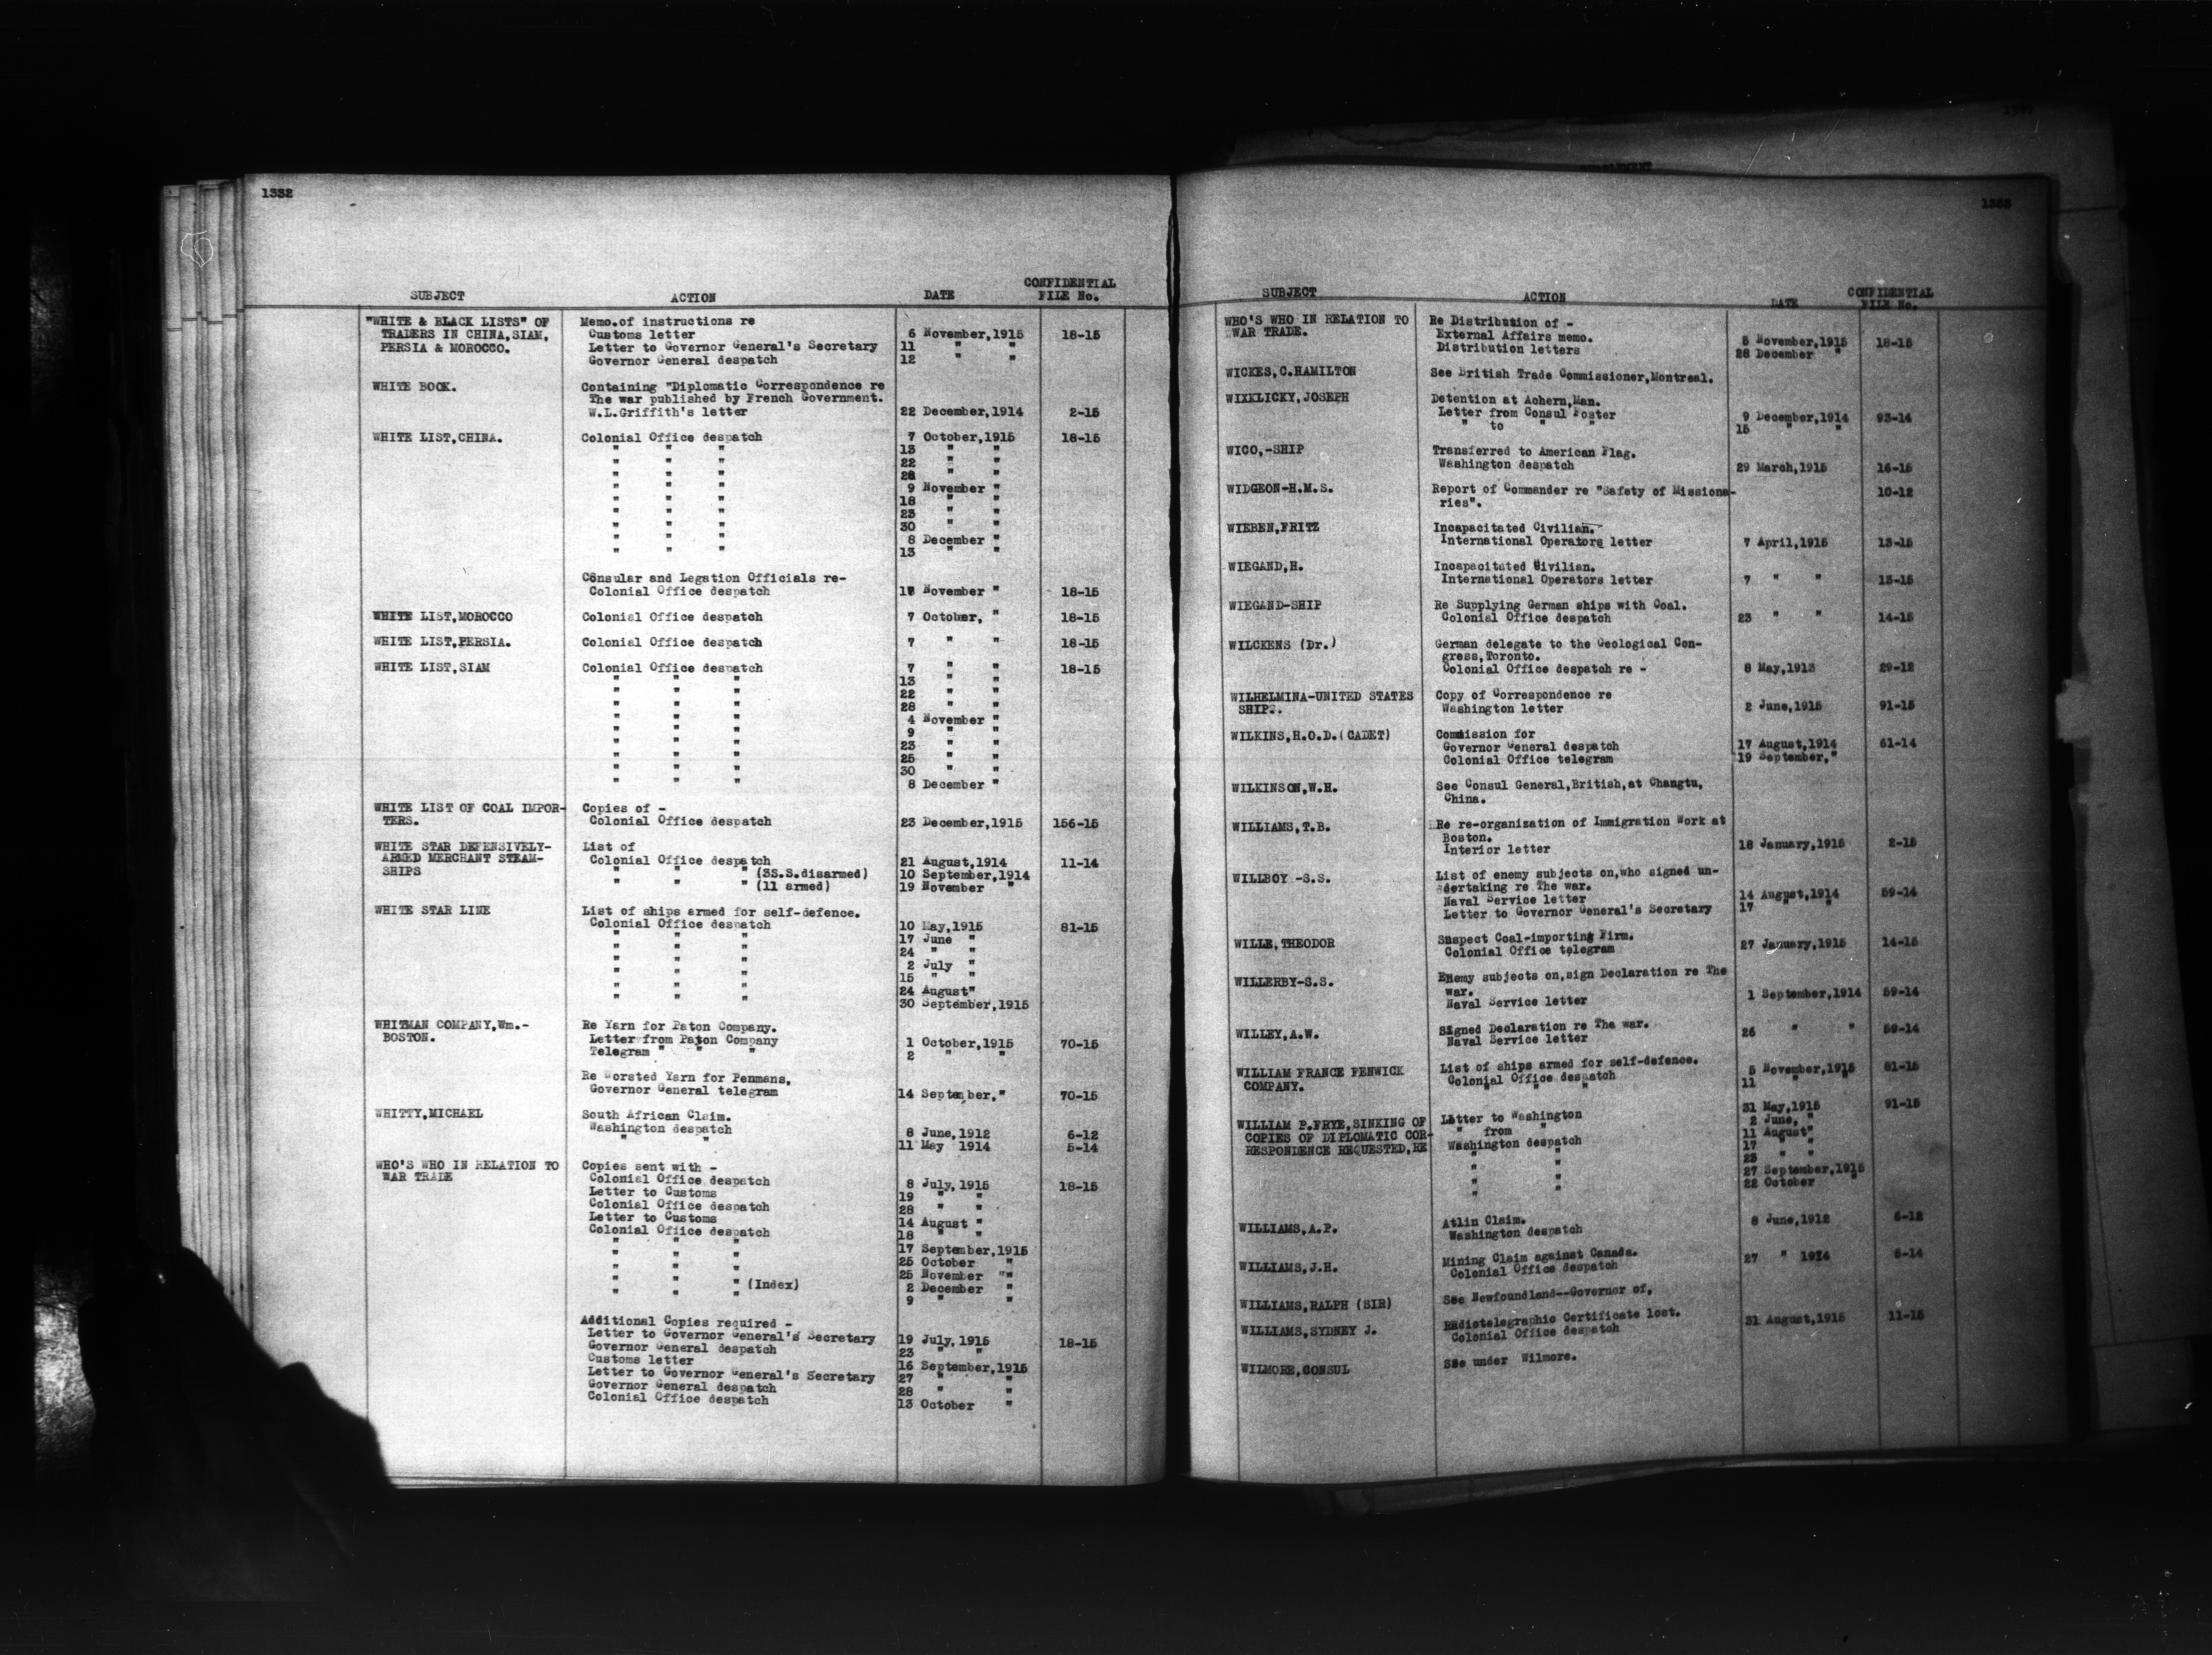 1332
SUBJECT ACTION DATE CONFIDENTIAL FILE No.
"WHITE & BLACK LISTS" OF Memo.of instructions re
TRADERS IN CHINA,SIAM, Customs letter 6 November,1915 18-15
PERSIA & MOROCCO. Letter to Governor General's Secretary 11 " "
Governor General despatch 12 " "
WHITE BOOK. Containing "Diplomatic Correspondence re
The war published by French Government.
W.L.Griffith's letter 22 December,1914 2-15
WHITE LIST,CHINA. Colonial Office despatch 7 October,1915 18-15
" " " 13 " "
" " " 22 " "
" " " 28 " "
" " " 9 November "
" " " 18 " "
" " " 23 " "
" " " 30 " "
" " " 8 December "
" " " 13 " "
Consular and Legation Officials re-
Colonial Office despatch November " 18-15
WHITE LIST,MOROCCO Colonial Office despatch 7 October, " 18-15
WHITE LIST,PERSIA. Colonial Office despatch 7 " " 18-15
WHITE LIST,SIAM Colonial Office despatch 7 " " 18-15
" " " 13 " "
" " " 22 " "
" " " 28 " "
" " " 4 November "
" " " 9 " "
" " " 23 " "
" " " 25 " "
" " " 30 " "
" " " 8 December "
WHITE LIST OF COAL IMPOR- Copies of -
TERS. Colonial Office despatch 23 December,1915 156-15
WHITE STAR DEFENSIVELY- List of
ARMED MERCHANT STEAM- Colonial Office despatch 21 August,1914 11-14
SHIPS " " " (3S.S.disarmed) 10 September,1914
" " " (11 armed) 19 November "
WHITE STAR LINE List of ships armed for self-defence.
Colonial Office despatch 10 May,1915 81-15
" " " 17 June "
" " " 24 " "
" " " 2 July "
" " " 15 " "
" " " 24 August"
" " " 30 September,1915
WHITMAN COMPANY,Wm.- Re Yarn for Paton Company.
BOSTON. Letter from Paton Company 1 October,1915 70-15
Telegram " " " 2 " "
Re Worsted Yarn for Penmans,
Governor General telegram 14 September," 70-15
WHITTY,MICHAEL South African Claim.
Washington despatch 8 June,1912 6-12
" " 11 May 1914 5-14
WHO'S WHO IN RELATION TO Copies sent with -
WAR TRADE Colonial Office despatch 8 July,1915 18-15
Letter to Customs 19 " "
Colonial Office despatch 28 " "
Letter to Customs 14 August "
Colonial Office despatch 18 " "
" " " 17 September,1915
" " " 25 October "
" " " 25 November "
" " " (Index) 2 December "
" " " 9 " "
Additional Copies required -
Letter to Governor General's Secretary 19 July,1915 18-15
Governor General despatch 23 " "
Customs letter 16 September,1915
Letter to Governor General's Secretary 27 " "
Governor General despatch 28 " "
Colonial Office despatch 13 October "
1333
SUBJECT ACTION DATE CONFIDENTIAL FILE No.
WHO'S WHO IN RELATION TO Re Distribution of -
WAR TRADE. External Affairs memo. 5 November,1915 18-15
Distribution letters 28 December "
WICKES,C.HAMILTON See British Trade Commissioner,Montreal.
WIXKLICKY,JOSEPH Detention at Achern,Man.
Letter from Consul Foster 9 December,1914 93-14
" to " " 15 " "
WICO,-SHIP Transferred to American Flag.
Washington despatch 29 March,1915 16-15
WIDGEON-H.M.S. Report of Commander re "Safety of Missiona- 10-12
ries".
WIEBEN,FRITZ Incapacitated Civilian.
International Operators letter 7 April,1915 13-15
WIEGAND,H. Incapacitated Civilian.
International Operators letter 7 " " 13-15
WIEGAND-SHIP Re Supplying German ships with Coal.
Colonial Office despatch 23 " " 14-15
WILCKENS (Dr.) German delegate to the Geological Con-
gress,Toronto.
Colonial Office despatch re - 8 May,1913 29-12
WILHELMINA-UNITED STATES Copy of Correspondence re
SHIPS. Washington letter 2 June,1915 91-15
WILKINS,H.O.D.(CADET) Commission for
Governor General despatch 17 August,1914 61-14
Colonial Office telegram 19 September,"
WILKINSON,W.H. See Consul General,British,at Changtu,
China.
WILLIAMS,T.B. Re re-organization of Immigration Work at
Boston.
Interior letter 18 January,1915 2-15
WILLBOY -S.S. List of enemy subjects on,who signed un-
dertaking re The war.
Naval Service letter 14 August,1914 59-14
Letter to Governor General's Secretary 17 " "
WILLE,THEODOR Suspect Coal-importing Firm.
Colonial Office telegram 27 January,1915 14-15
WILLERBY-S.S. Enemy subjects on,sign Declaration re The
war.
Naval Service letter 1 September,1914 59-14
WILLEY,A.W. Signed Declaration re The war.
Naval Service letter 26 " " 59-14
WILLIAM FRANCE FENWICK List of ships armed for self-defence.
COMPANY. Colonial Office despatch 5 November,1915 81-15
" " " 11 " "
WILLIAM P.FRYE,SINKING OF Letter to Washington 31 May,1915 91-15
COPIES OF DIPLOMATIC COR- " from " 2 June, "
RESPONDENCE REQUESTED,RE Washington despatch 11 August"
" " 17 " "
" " 23 " "
" " 27 September,1915
" " 22 October "
WILLIAMS,A.P. Atlin Claim.
Washington despatch 8 June,1912 6-12
WILLIAMS,J.H. Mining Claim against Canada.
Colonial Office despatch 27 " 1914 5-14
WILLIAMS,RALPH (SIR) See Newfoundland--Governor of,
WILLIAMS,SYDNEY J. Radiotelegraphic Certificate lost.
Colonial Office despatch 31 August,1915 11-15
WILMORE,CONSUL See under Wilmore.